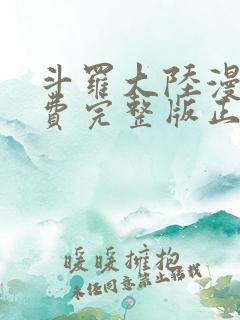 斗羅大陸漫
費完整版正
暖暖擁抱
未经同意禁止转载